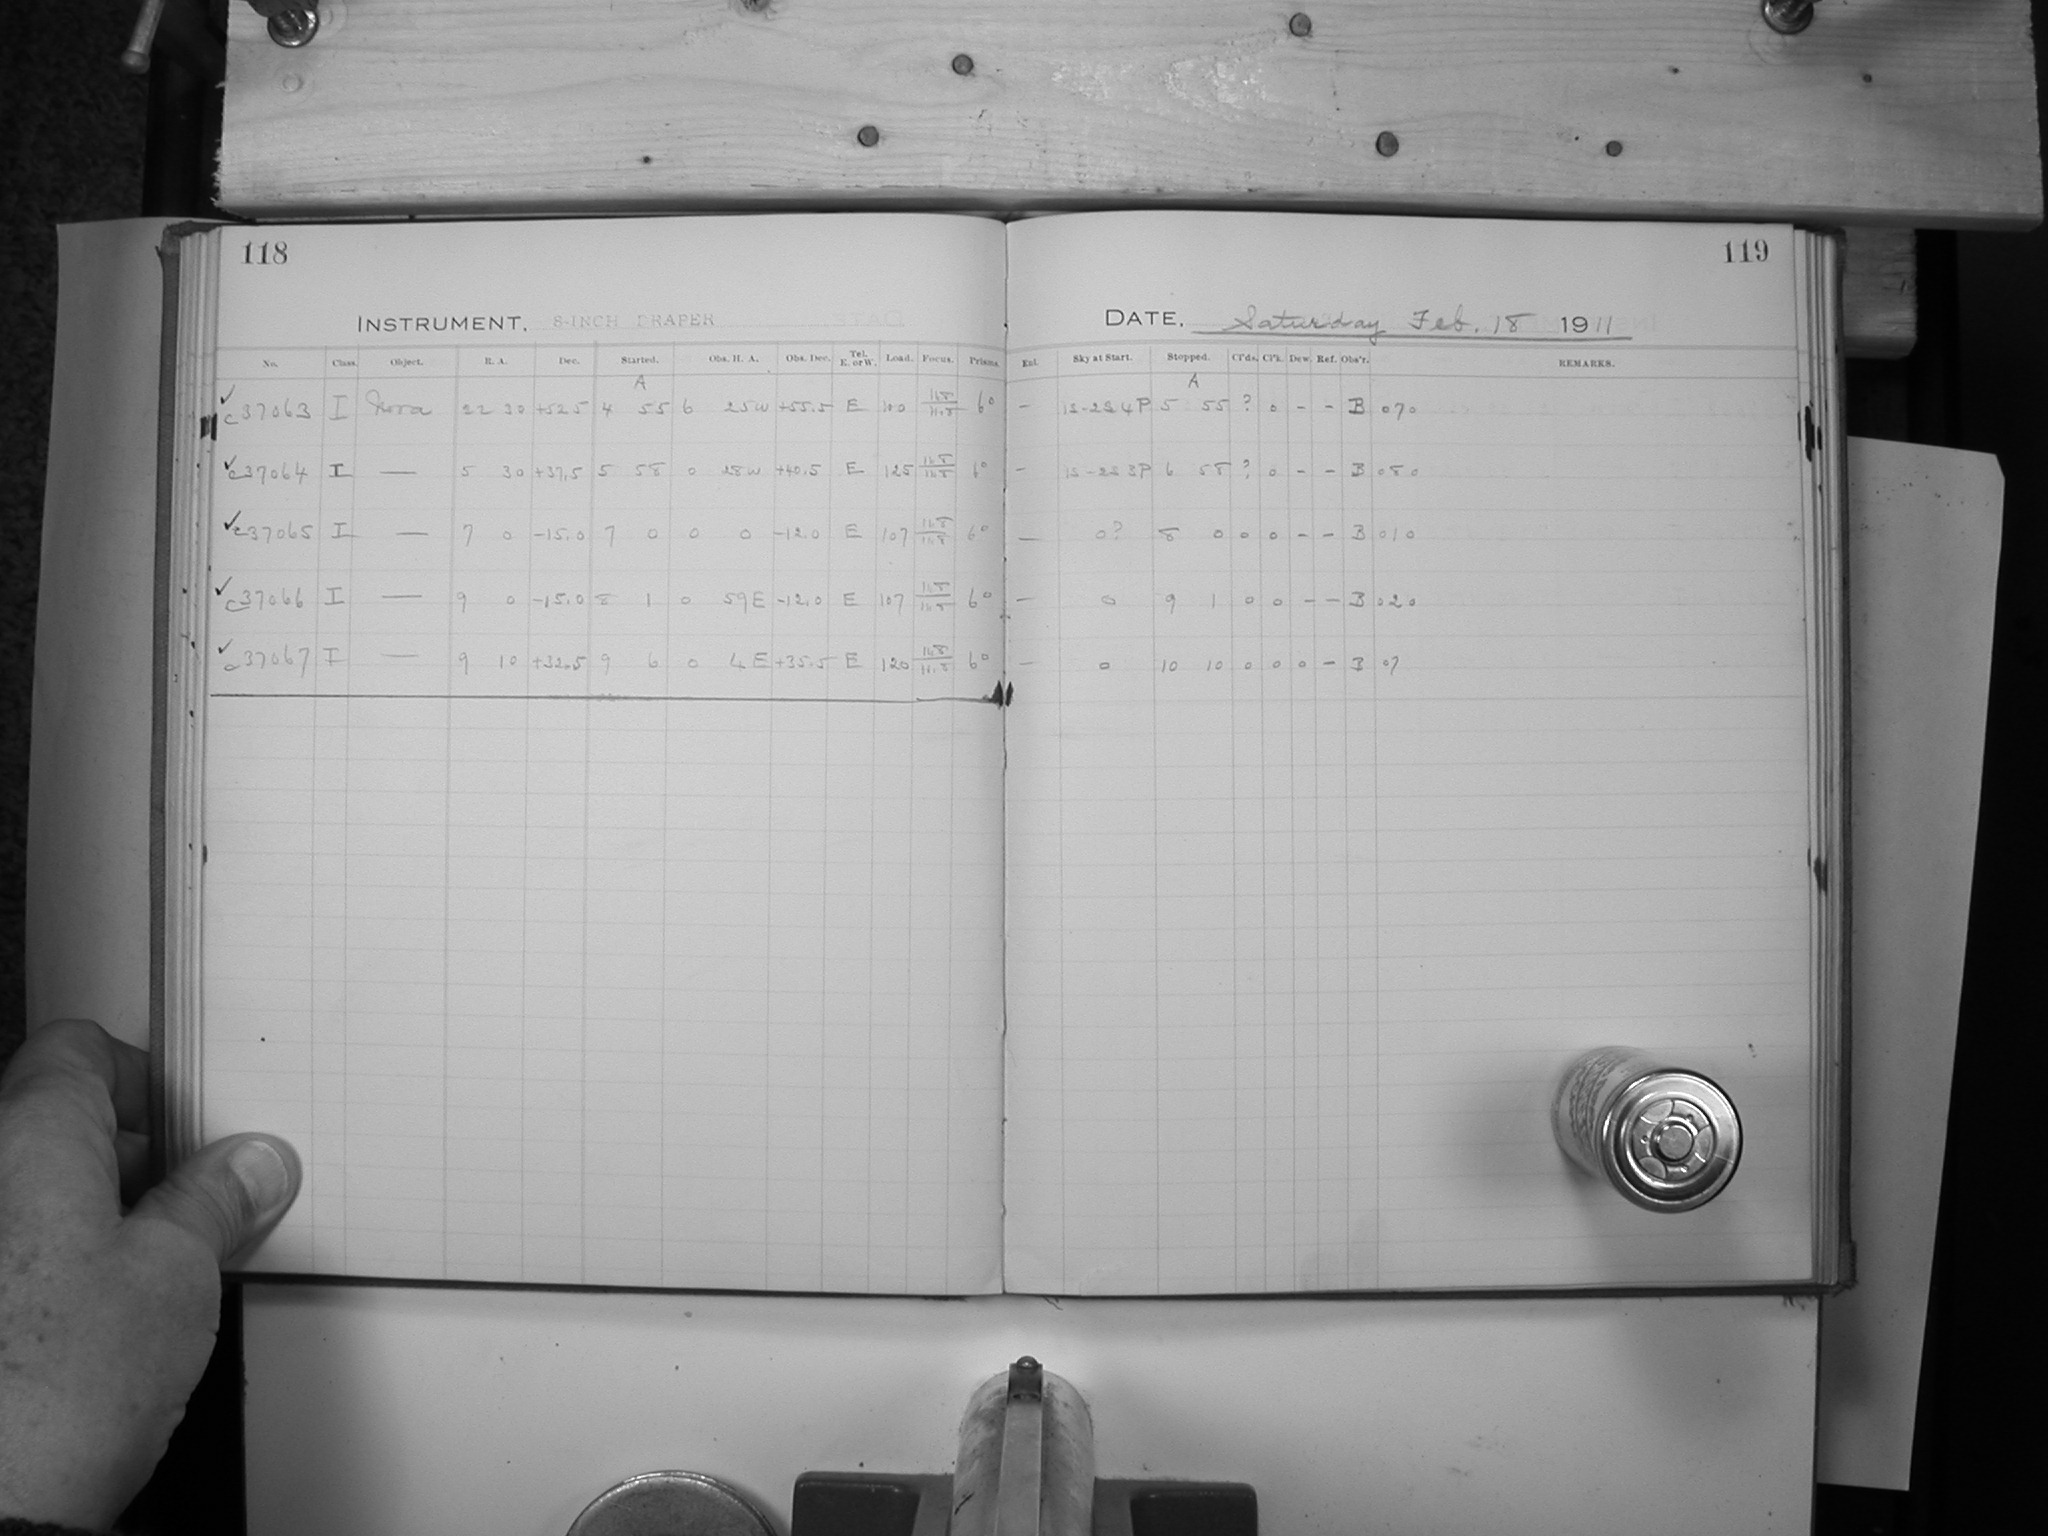 118
119
INSTRUMENT. 8-INCH DRAPER
DATE. Saturday Feb. 18 1911
No. Class. Object. R. A. Dec. Started. Obs. H. A. Obs. Dec. Tel. E. or W. Load. Focus. Prisms. Ent. Sky at Start. Stopped. Cl'ds. Cl'k. Dew. Ref. Obs'r. REMARKS.
A A
✓ c37063 I Nova 22 30 +52.5 4 55 6 25W +55.5 E 100 11.8/11.8 6° - 1S-2S4P 5 55 ? 0 - - B 070
✓ c37064 I — 5 30 +37.5 5 58 0 28W +40.5 E 125 11.8/11.8 6° - 1S-2S3P 6 58 ? 0 - - B 080
✓ c37065 I — 7 0 -15.0 7 0 0 0 -12.0 E 107 11.8/11.8 6° — 0? 8 0 0 0 - - B 010
✓ c37066 I — 9 0 -15.0 8 1 0 59E -12.0 E 107 11.8/11.8 6° - 0 9 1 0 0 - - B 020
✓ c37067 I — 9 10 +32.5 9 6 0 4E +35.5 E 120 11.8/11.8 6° - 0 10 10 0 0 0 - B 07